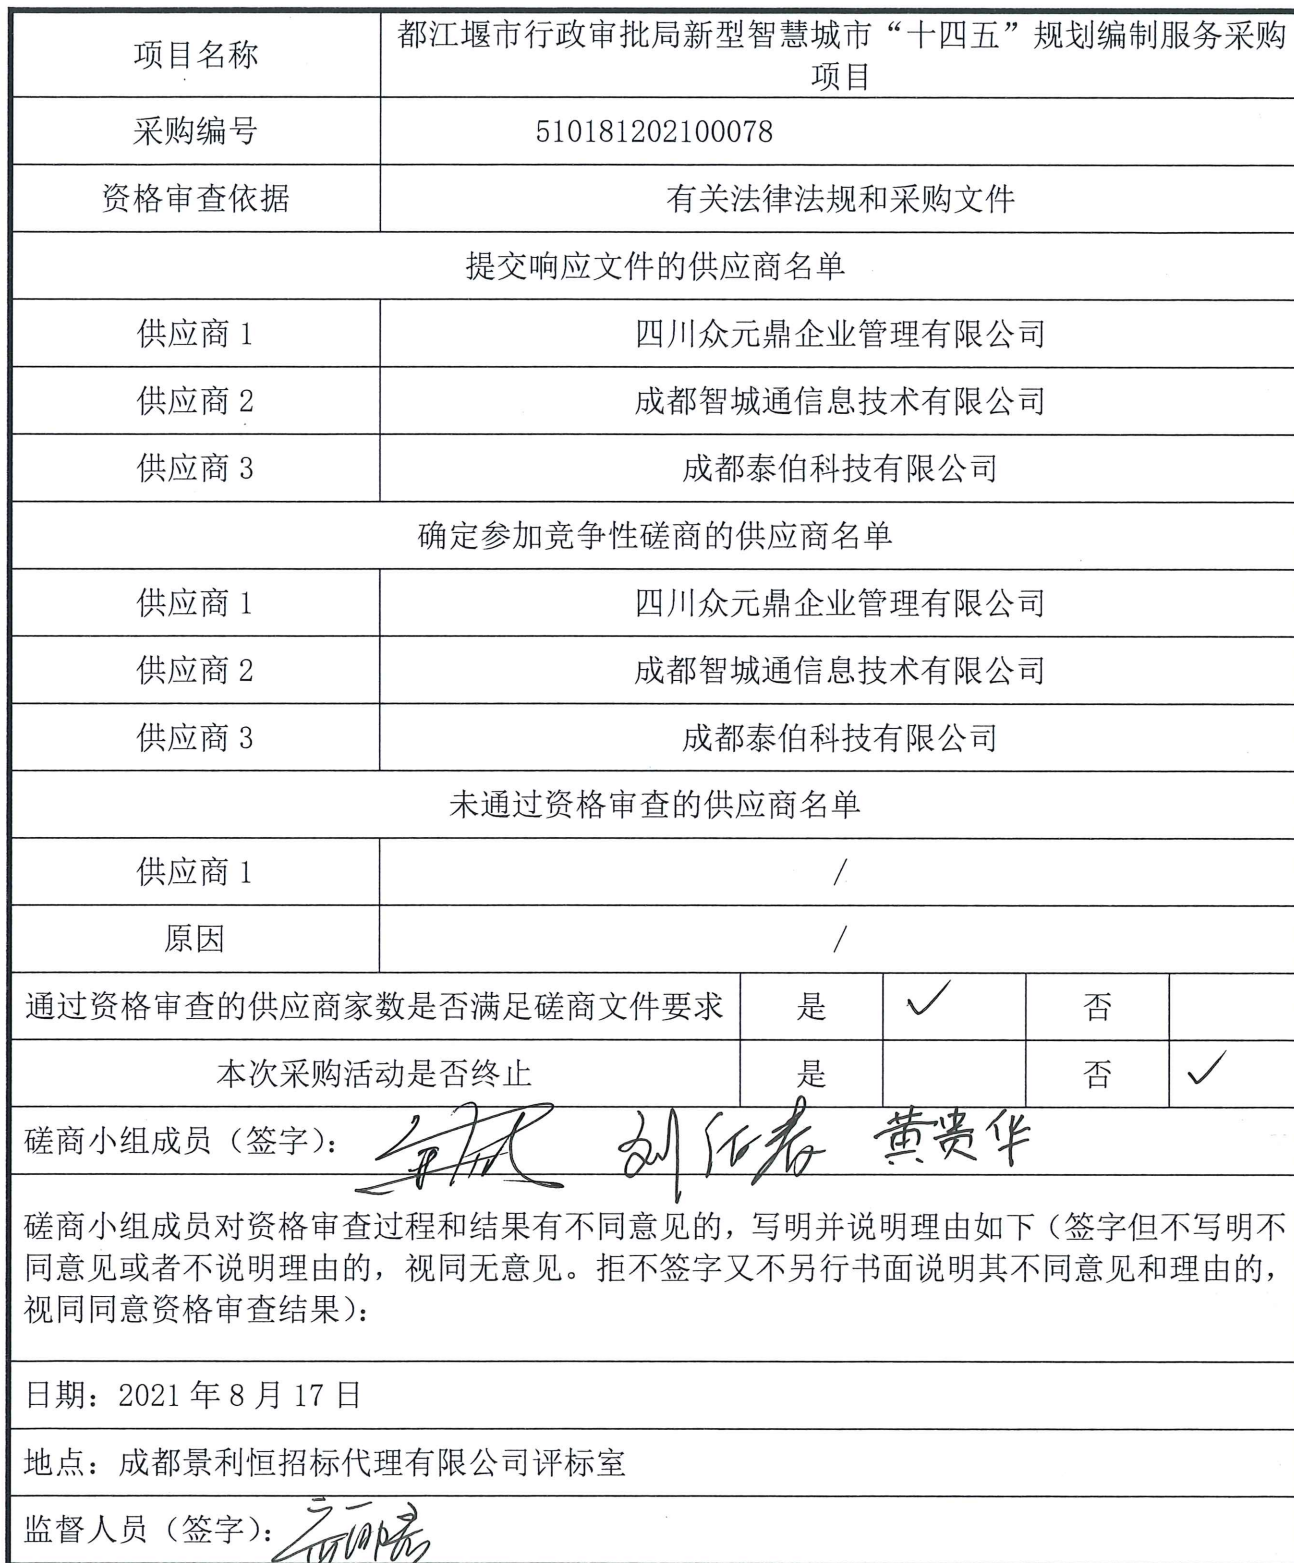 项目名称
都江堰市行政审批局新型智慧城市“十四五”规划编制服务采购
项目
采购编号
510181202100078
资格审查依据
有关法律法规和采购文件
提交响应文件的供应商名单
供应商 1
四川众元鼎企业管理有限公司
供应商 2
成都智城通信息技术有限公司
供应商 3
成都泰伯科技有限公司
确定参加竞争性磋商的供应商名单
供应商 1
四川众元鼎企业管理有限公司
供应商 2
成都智城通信息技术有限公司
供应商 3
成都泰伯科技有限公司
未通过资格审查的供应商名单
供应商 1
/
原因
/
通过资格审查的供应商家数是否满足磋商文件要求 是 ✓ 否
本次采购活动是否终止 是 否 ✓
磋商小组成员（签字）： 黄贵华
磋商小组成员对资格审查过程和结果有不同意见的，写明并说明理由如下（签字但不写明不
同意见或者不说明理由的，视同无意见。拒不签字又不另行书面说明其不同意见和理由的，
视同同意资格审查结果）：
日期：2021 年 8 月 17 日
地点：成都景利恒招标代理有限公司评标室
监督人员（签字）：